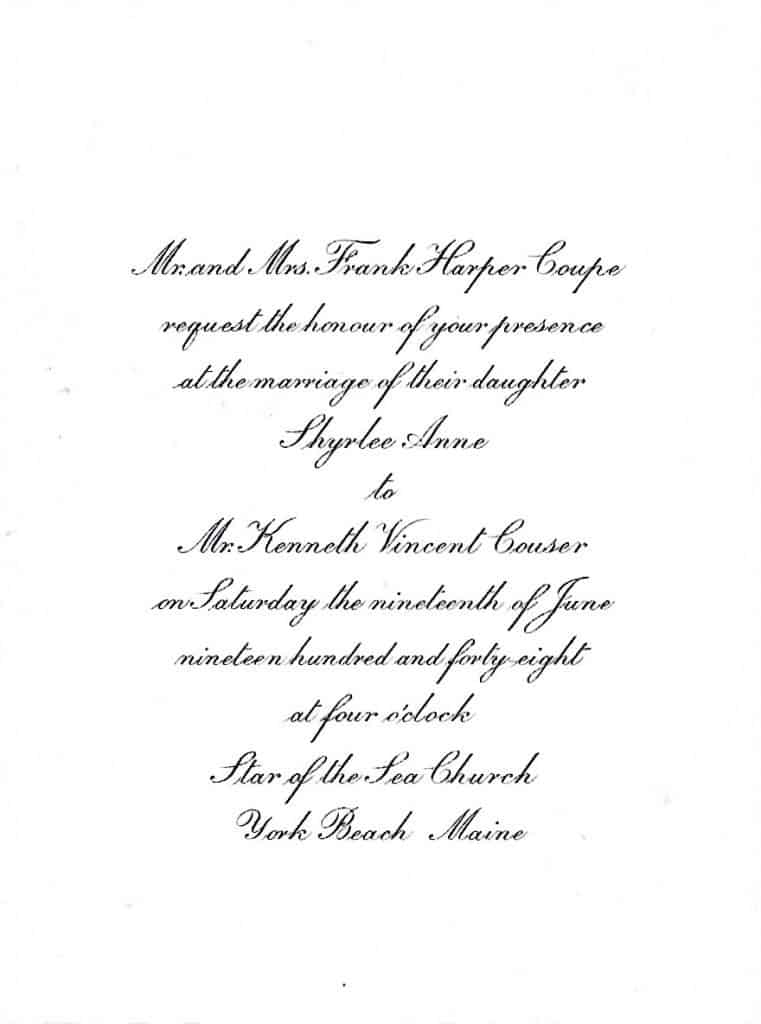 Mr. and Mrs. Frank Harper Coupe
request the honour of your presence
at the marriage of their daughter
Shyrlee Anne
to
Mr. Kenneth Vincent Couser
on Saturday the nineteenth of June
nineteen hundred and forty-eight
at four o'clock
Star of the Sea Church
York Beach Maine